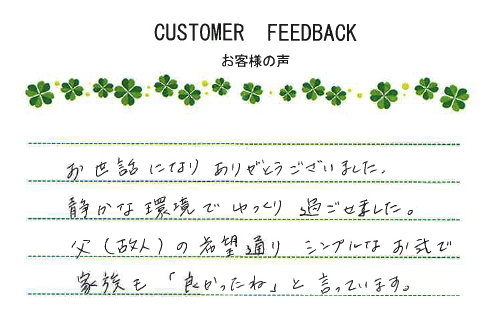 CUSTOMER FEEDBACK
お客様の声
お世話になり ありがとうございました.
静かな環境で ゆっくり 過ごせました。
父(故人)の希望通り シンプルなお式で
家族も「良かったね」と言っています。